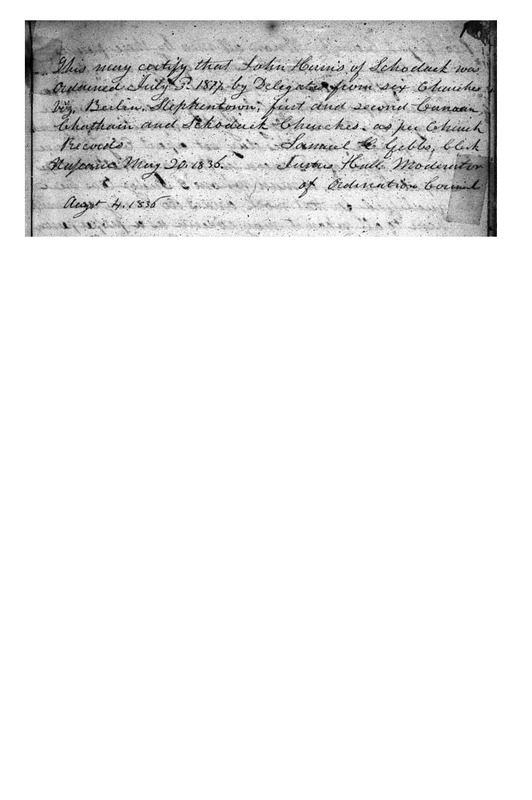 This may certify that John Harris of Schodack was
ordained July 3. by Delegates from six Churches
viz, Berlin, Stephentown, first and second Canaan
Chatham and Schodack Churches. as per Church
Records Samuel C Gibbs, Clerk
May 20. 1836. Justus Hull Moderator
of Ordination Council
Augst 4. 1836